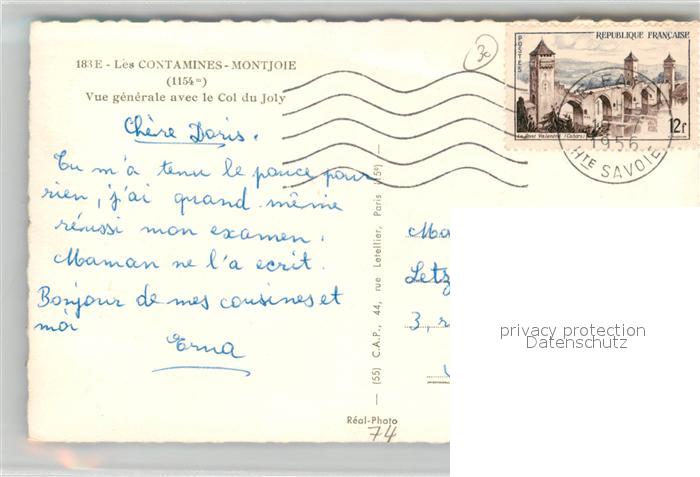 183 E - Les CONTAMINES - MONTJOIE
(1154 m)
Vue générale avec le Col du Joly
3c
POSTES
REPUBLIQUE FRANÇAISE
Le Pont Valentré (Cahors)
12f
1956
HTE SAVOIE
Chère Doris.
Tu m'a tenu le pouce pour
rien, j'ai quand même
réussi mon examen.
Maman ne l'a ecrit.
Bonjour de mes cousines et
moi
Erna
(55) C.A.P., 44, rue Letellier, Paris (15e)
Ma
Letz
3, r
privacy protection
Datenschutz
Réal-Photo
74